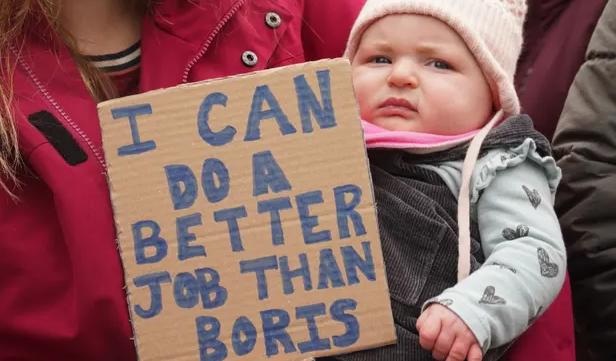 I CAN
DO A
BETTER
JOB THAN
BORIS